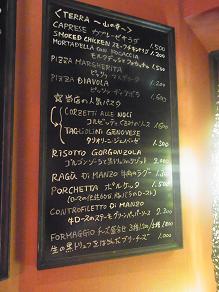 <TERRA 一山の幸一>
CAPRESE カプレーゼサラダ 1,500
SMOKED CHICKEN スモークチキンサラダ 1,200
MORTADELLA CON FOCACCIA
モルタデッラとフォカッチャ 1,500
PIZZA MARGHERITA
ピッツァ マルゲリータ
PIZZA DIAVOLA
ピッツァ ディアボラ
☆当店の人気パスタ 1,600
CORZETTI ALLE NOCI
コルゼッティ くるみのソース
TAGLIOLINI GENOVESE
タリオリーニ ジェノベーゼ 1,500
RISOTTO GORGONZOLA
ゴルゴンゾーラと リゾット 2,000
RAGÙ DI MANZO 牛肉のラグー 1,300
PORCHETTA ポルケッタ 1,500
CONTROFILETTO DI MANZO
牛ロースのステーキ グリーンペッパーソース 2,200
FORMAGGIO チーズ盛合せ 3種 1,300
生の黒トリュフをはさんだブリーチーズ 1,000